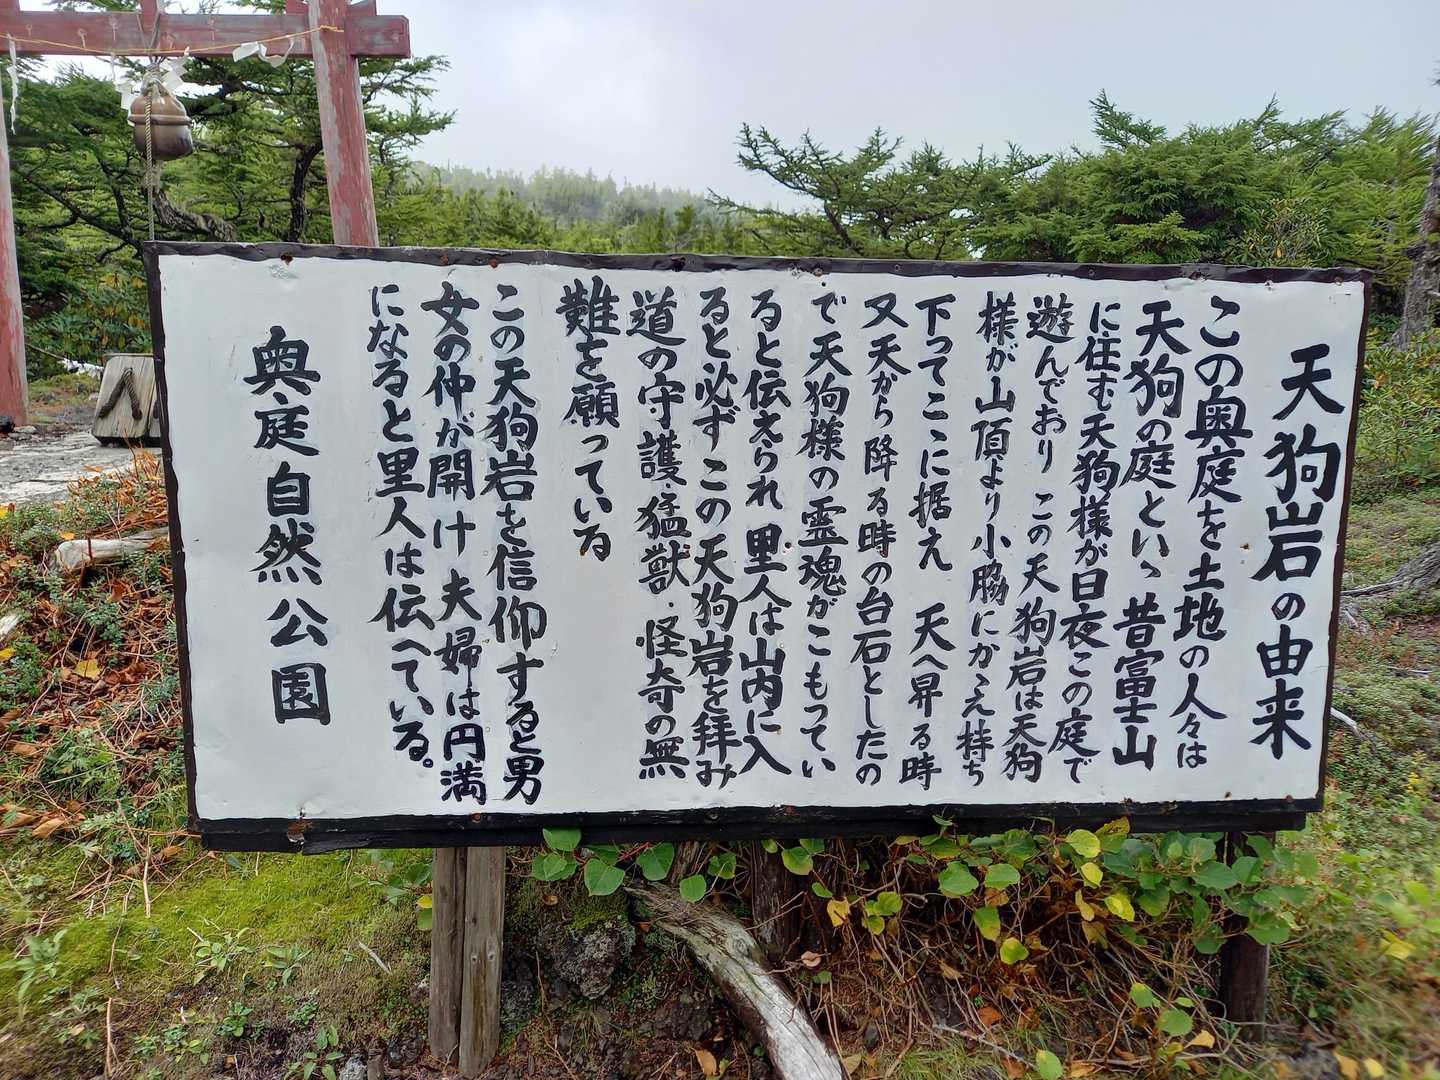 天狗岩の由来
この奥庭を土地の人々は
天狗の庭といゝ昔富士山
に住む天狗様が日夜この庭で
遊んでおり この天狗岩は天狗
様が山頂より小脇にかゝえ持ち
下ってここに据え 天へ昇る時
又天から降る時の台石としたの
で天狗様の霊魂がこもってい
ると伝えられ 里人は山内に入
ると必ずこの天狗岩を拝み
道の守護・猛獣・怪奇の無
難を願っている
この天狗岩を信仰すると男
女の仲が開け 夫婦は円満
になると里人は伝へている。
奥庭自然公園